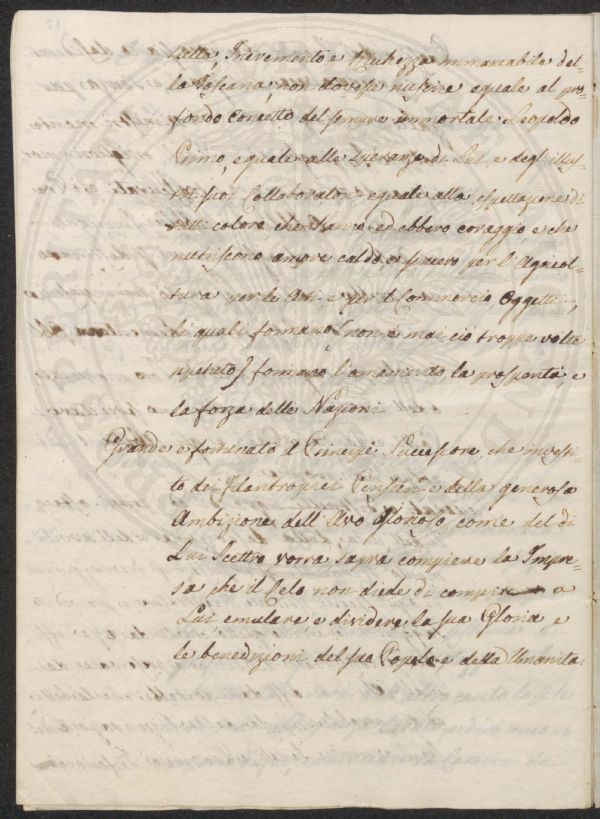 tutto, Incremento e Ricchezza immancabile del-
la Toscana, non dovesse riuscire equale al pro-
fondo Concetto del sempre immortale Leopoldo
Primo, equale alle Speranze di Lui, e degl'illus-
Collaboratori equale alla espettazione di
tutti coloro che hanno, ed ebbero coraggio, e che
nutriscono amore caldo, e sincero per l'Agricol-
tura per le Arti, e per il Commercio Oggetti,
li quali formano (non è mai ciò troppe volte
ripetuto) formano l'ornamento, la prosperità, e
la forza delle Nazioni
Grande e fortunato il Principe Successore, che investi-
to dei filantropici Pensieri, e della generosa
Ambizione dell'Avo Glorioso, come del di
Lui Scettro, vorrà, saprà compiere la Impre-
sa che il Celo non diede di compire a
Lui, emulare e dividere la sua Gloria e
le benedizioni del suo Popolo, e della Umanità.